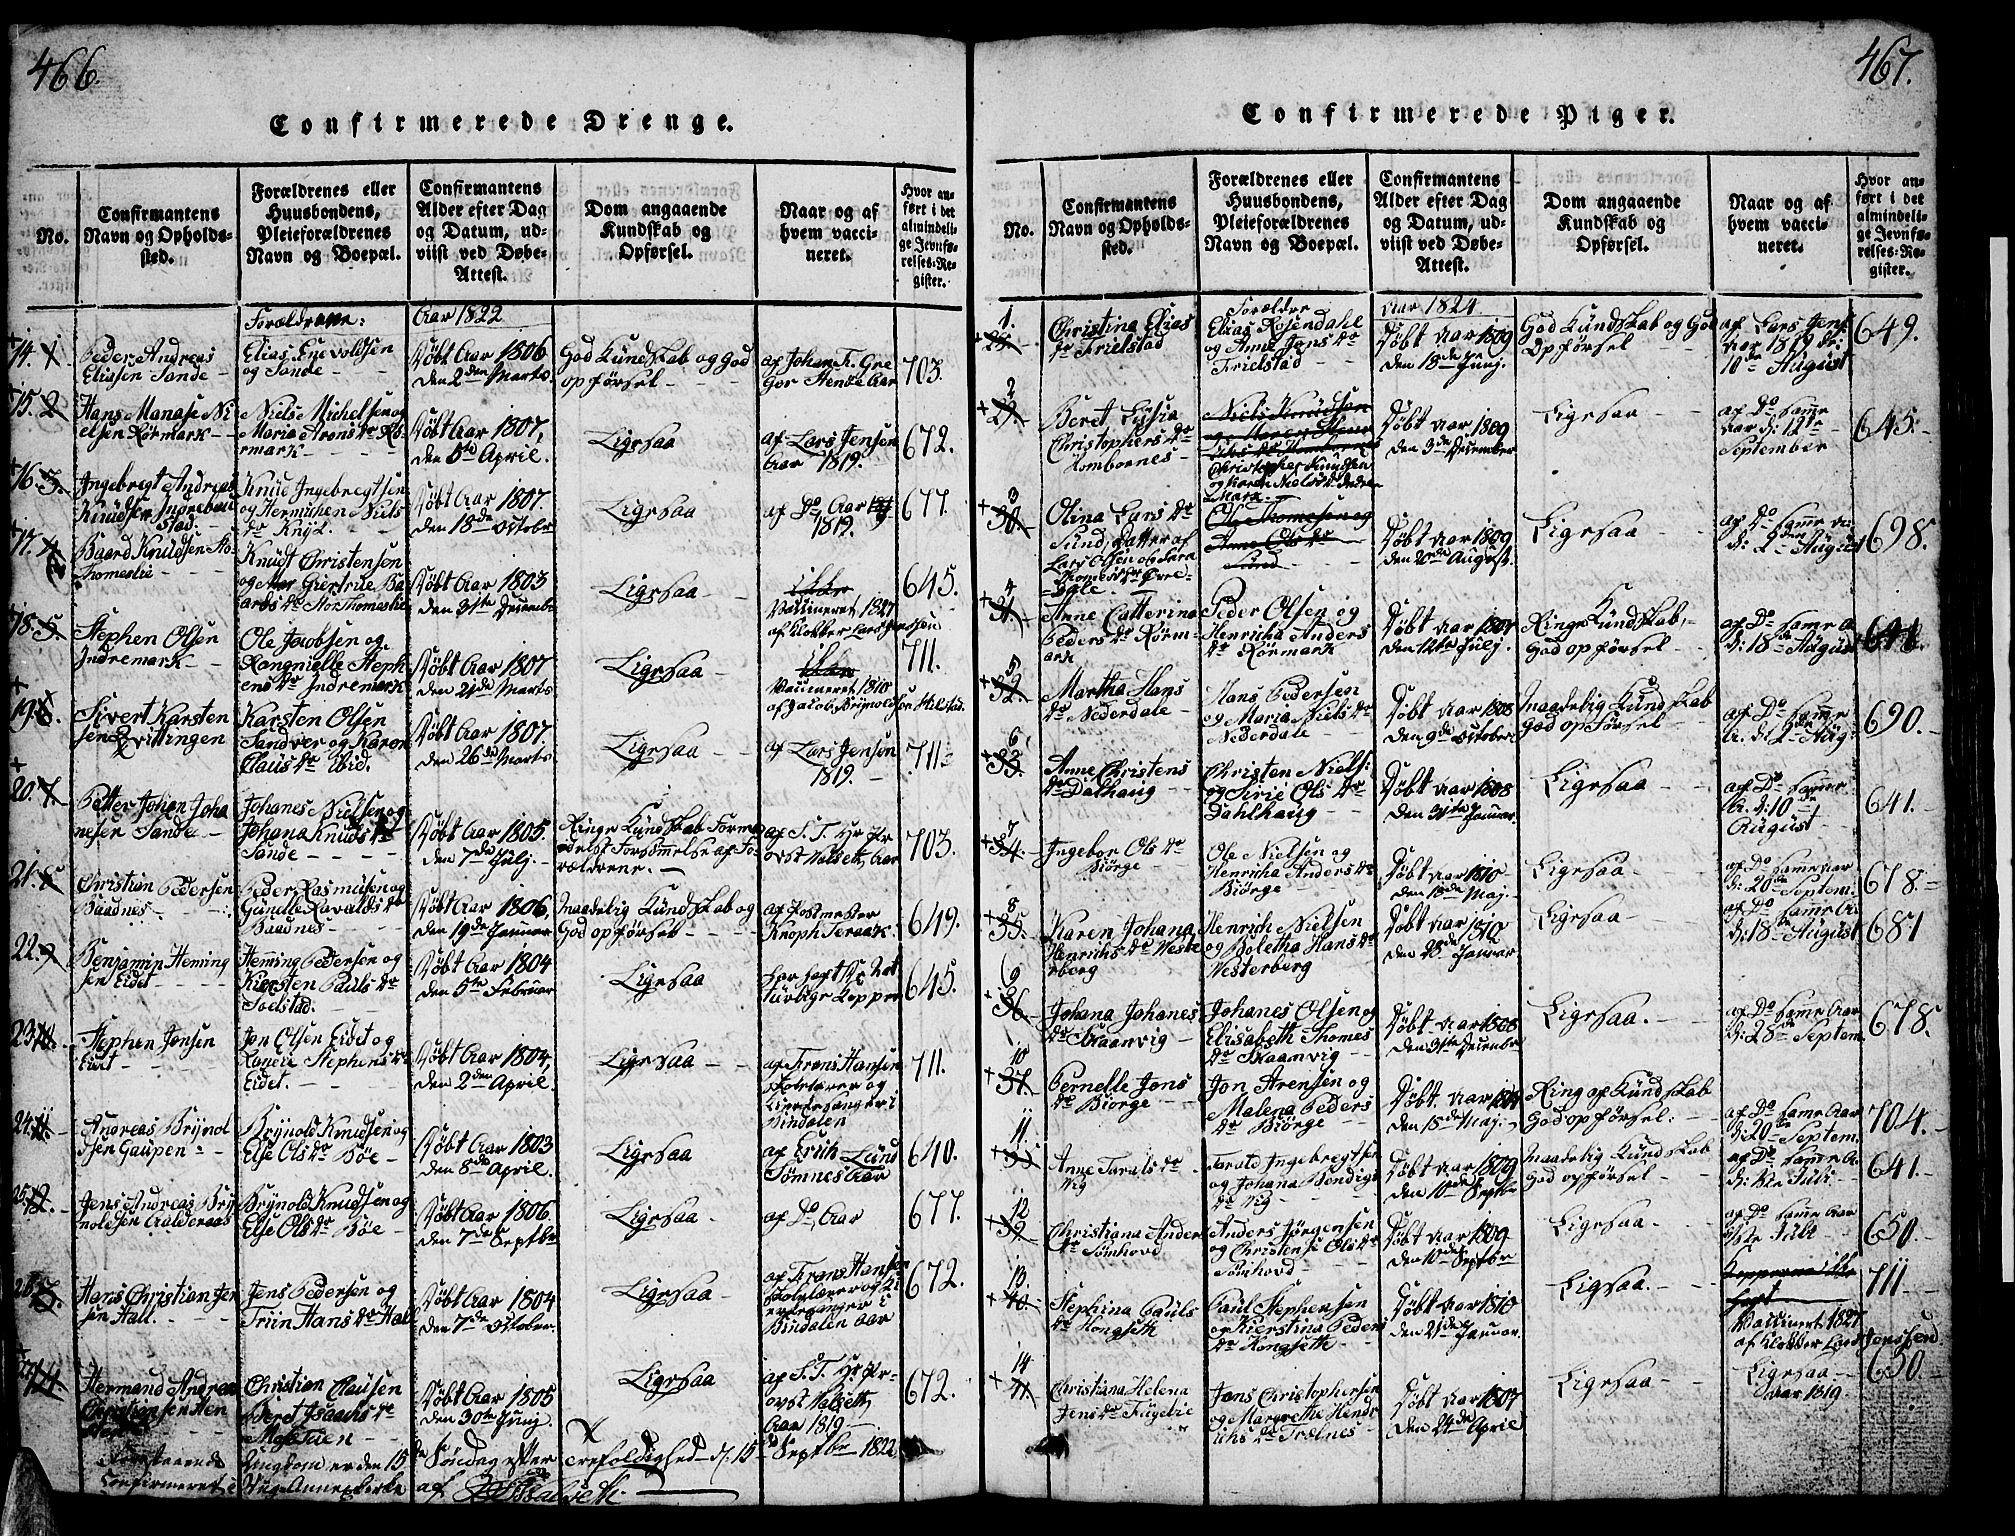 466.
Confirmerede Drenge.
No.
Confirmantens
Navn og Opholds-
sted.
Forældrenes eller
Huusbondens,
Pleieforældrenes
Navn og Boepæl.
Confirmantens
Alder efter Dag
og Datum, ud-
viist ved Døbe-
Attest.
Dom angaaende
Kundskab og
Opførsel.
Naar og af
hvem vacci-
neret.
Hvor an-
ført i det
almindeli-
ge Jevnfø-
relses-Re-
gister.
Forældrene:
Aar 1822
14. 1
Peder Andreas
Eliasen Sande
Elias Enevoldsen
og Sande
Døbt Aar 1806
den 2den Marts
God Kundskab og God
opførsel
af Johan F. Gre
ger Stenze Aar
703.
15. 2
Hans Manase Ni
elsen Rørmark
Niels Michelsen og
Maria Arons Dr Rø
rmark
Døbt Aar 1807,
den 5te April.
Ligesaa
af Lars Jensen
Aar 1819.
672.
16. 3.
Ingebregt Andreas
Knudsen Indrebøe
stad.
Knud Ingebregtsen
og Hermichen Niels
Dr Knyt.
Døbt Aar 1807.
den 18de Octobr
Ligesaa
af Do Aar
1819.
677.
17. 4
Baard Knudsen
Thomeslie
Knudt Christensen
og Giertrue Ba
ards Dr Thomeslie
Døbt Aar 1803
den 31te Decembr
Ligesaa
ikke
Vaccineret 1827
af Klokker Lars Jenssen
645.
18. 5.
Stephen Olsen
Indremark
Ole Jacobsen og
Rangnielle Steph
ens Dr Indremark
Døbt Aar 1807
den 21de Marts
Ligesaa
ikke
Vaccineret 1810
af Jacob Brynolds
711.
19. 6.
Sivert Karsten
sen Qvittingen
Karsten Olsen
Sandver og Karen
Claus Dr Ibid.
Døbt Aar 1807.
den 26de Marts
Ligesaa
af Lars Jensen
1819.
711.
20. 7.
Petter Johan Joha
nesen Sande
Johanes Nielsen og
Johana Knuds Dr
Sande
Døbt Aar 1805.
den 7de Julj.
Ringe Kundskab Forme
delst Forsømmelse af Fo-
rældrene.
af S. T. Hr Pr
ovst Walseth, Aar
703.
21. 8
Christian Pedersen
Baadnes
Peder Rasmusen og
Gunelle Ravalds Dr
Baadnes
Døbt Aar 1806.
den 19de Januar
Maadelig Kundskab og
God opførsel
af Postmester
Knoph Teraak
649.
22. 9
Benjamin Heming
sen Eidet
Heming Pedersen og
Kiersten Pauls Dr
Soelstad.
Døbt Aar 1804
den 5te Februar
Ligesaa
har haft de Nat
turlige Kopper
645.
23. 10.
Stephen Jonsen
Eidet
Jon Olsen Eidet og
Stephens Dr
Eidet.
Døbt Aar 1804,
den 2den April.
Ligesaa
af Frans Hansen
Skolelærer og
Kirkesanger i
Bindalen
711.
24. 11.
Andreas Brynol
sen Gaupen
Brynold Knudsen og
Else Ols Dr Bøe
Døbt Aar 1803
den 8de April.
Ligesaa
af Erich Lund
Sømnes Aar
640.
25. 12.
Jens Andreas Bry
noldsen Kalderaas
Brynold Knudsen og
Else Ols Dr Bøe
Døbt Aar 1806
den 7de Septbr
Ligesaa
af Do Aar
677.
26. 13.
Hans Christian Jen
sen Hall.
Jens Pedersen og
Triin Hans Dr Hall
Døbt Aar 1804
den 7de October.
Ligesaa
af Frans Hansen
Skolelærer og Ki
rkesanger i
Bindalen Aar
672.
27. 14.
Hermand Andreas
Christiansen
Christian Clausen
Beret Isaachs Dr
Døbt Aar 1805
den 30te Junj.
Ligesaa
af S. T. Hr Pr-
ovst Walseth,
Aar 1819
672.
Ovenstaaende Ungdom er den 15de Søndag efter Trefoldighed d. 15 Septbr 1822
Confirmeret i Vigs Annex Kirke af Walseth
467.
Confirmerede Piger.
No.
Confirmantens
Navn og Opholds-
sted.
Forældrenes eller
Huusbondens,
Pleieforældrenes
Navn og Boepæl.
Confirmantens
Alder efter Dag
og Datum, ud-
viist ved Døbe-
Attest.
Dom angaaende
Kundskab og
Opførsel.
Naar og af
hvem vacci-
neret.
Hvor an-
ført i det
almindeli-
ge Jevnfø-
relses-Re-
gister.
Forældre
Aar 1824
1.
28.
Christina Elias
Dr Frielstad
Elias Rosendahl
og Anne Jons Dr
Frielstad
Døbt Aar 1809
den 18de Junj.
God Kundskab og God
Opførsel
af Lars Jens:
Aar 1819 d:
10de August
649.
2
29.
Beret Lusia
Christophers Dr
Hombornes
Niels Knudsen
Christopher Knudsen
og Karen Niels Dr Indre
Mark.
Døbt Aar 1809
den 3de December
Ligesaa
af Do samme
Aar d: 12te
September
645.
3
30.
Olina Lars Dr
Sund, Datter af
Lars Olsen og Sara
Thomes Dr Øvre-
Dale.
Ole Thomesen og
Anne Ols Dr
Sund
Døbt Aar 1809
den 20de August.
Ligesaa
af Do samme Aa.
d: 2den August
698.
4
31.
Anne Catterina
Peders Dr Rørm-
ark
Peder Olsen og
Henricha Anders
Dr Rørmark
Døbt Aar 1807
den 12te Julj.
Ringe Kundskab,
God opførsel
af Do samme A
d: 18de August
5
32.
Martha Hans
Dr Nederdale
Hans Pedersen
og Maria Niels Dr
Nederdale
Døbt Aar 1808
den 9de October
Maadelig Kundskab
God opførsel
af Do samme
A. d: 2den Aug:
690.
6
33.
Anne Christens
Dr Dalhaug
Christen Niels:
og Sirie Ols Dr
Dahlhaug
Døbt Aar 1808
den 31te Januar.
Ligesaa
af Do samme
A. d: 10de
August
641.
7
34.
Ingebor Ols Dr
Biørge
Ole Nielsen og
Henricha Anders Dr
Biørge
Døbt Aar 1810
den 13de Maj.
Ligesaa
af Do samme Aar
d: 28de Septem.
678.
8
35.
Karen Johana
Henrichs Dr Veste
rborg
Henrich Nielsen
og Boletha Hans Dr
Vesterberg
Døbt Aar 1810
den 28de Januar
Ligesaa
af Do samme A.
d: 18de August
681
9
36.
Johana Johanes
Dr Skaanvig
Johanes Olsen og
Elisabeth Thomes
Dr Skaanvig
Døbt Aar 1808
den 31te December
Ligesaa.
af Do samme Aar
d: 28de Septem.
678.
10
37.
Pernelle Jons
Dr Biørge
Jon Arensen og
Malena Peders
Dr Biørge
den 15de Maj.
Ring af Kundskab
God opførsel:
af Do samme Aar
d: 20de Septem.
704.
11.
38
Anne Taralds Dr
Vig
Tarald Ingebregtsen
og Johana Bendigs
Dr Vig
Døbt Aar 1809
den 10de Septbr
Maadelig Kundskab
God opførsel
af Do samme A.
641.
12
39.
Christiana Anders
Dr Sømhovd
Anders Jørgensen
og Christense Ols Dr
Sømhovd
Døbt Aar 1809
den 10de Septbr
Ligesaa
af Do samme Aar
650.
13.
40.
Stephina Pauls
Dr Hongseth
Paul Stephensen
og Kierstina Peders
Dr Hongseth
Døbt Aar 1810
den 21de Januar.
Ligesaa.
Kopperne ikke
haft
Vaccinert 1827
af Klokker Lars Jenssen
711.
14
41.
Christiana Helena
Jens Dr Fuglvie
Jens Christophersen
og Margrethe Hend
richs Dr Trælnes
Døbt Aar 1807
den 24de April
Ligesaa
Ligesaa
Aar 1819.
650.